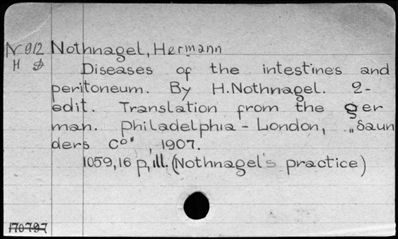 N 912 Nothnagel, Hermann
H
Diseases of the intestines and
peritoneum. By H. Nothnagel. 2-
edit. Translation from the ger
man. Philadelphia - London, „Saun
ders Co" , 1907.
1059,16 p, ill. (Nothnagel's practice)
170797